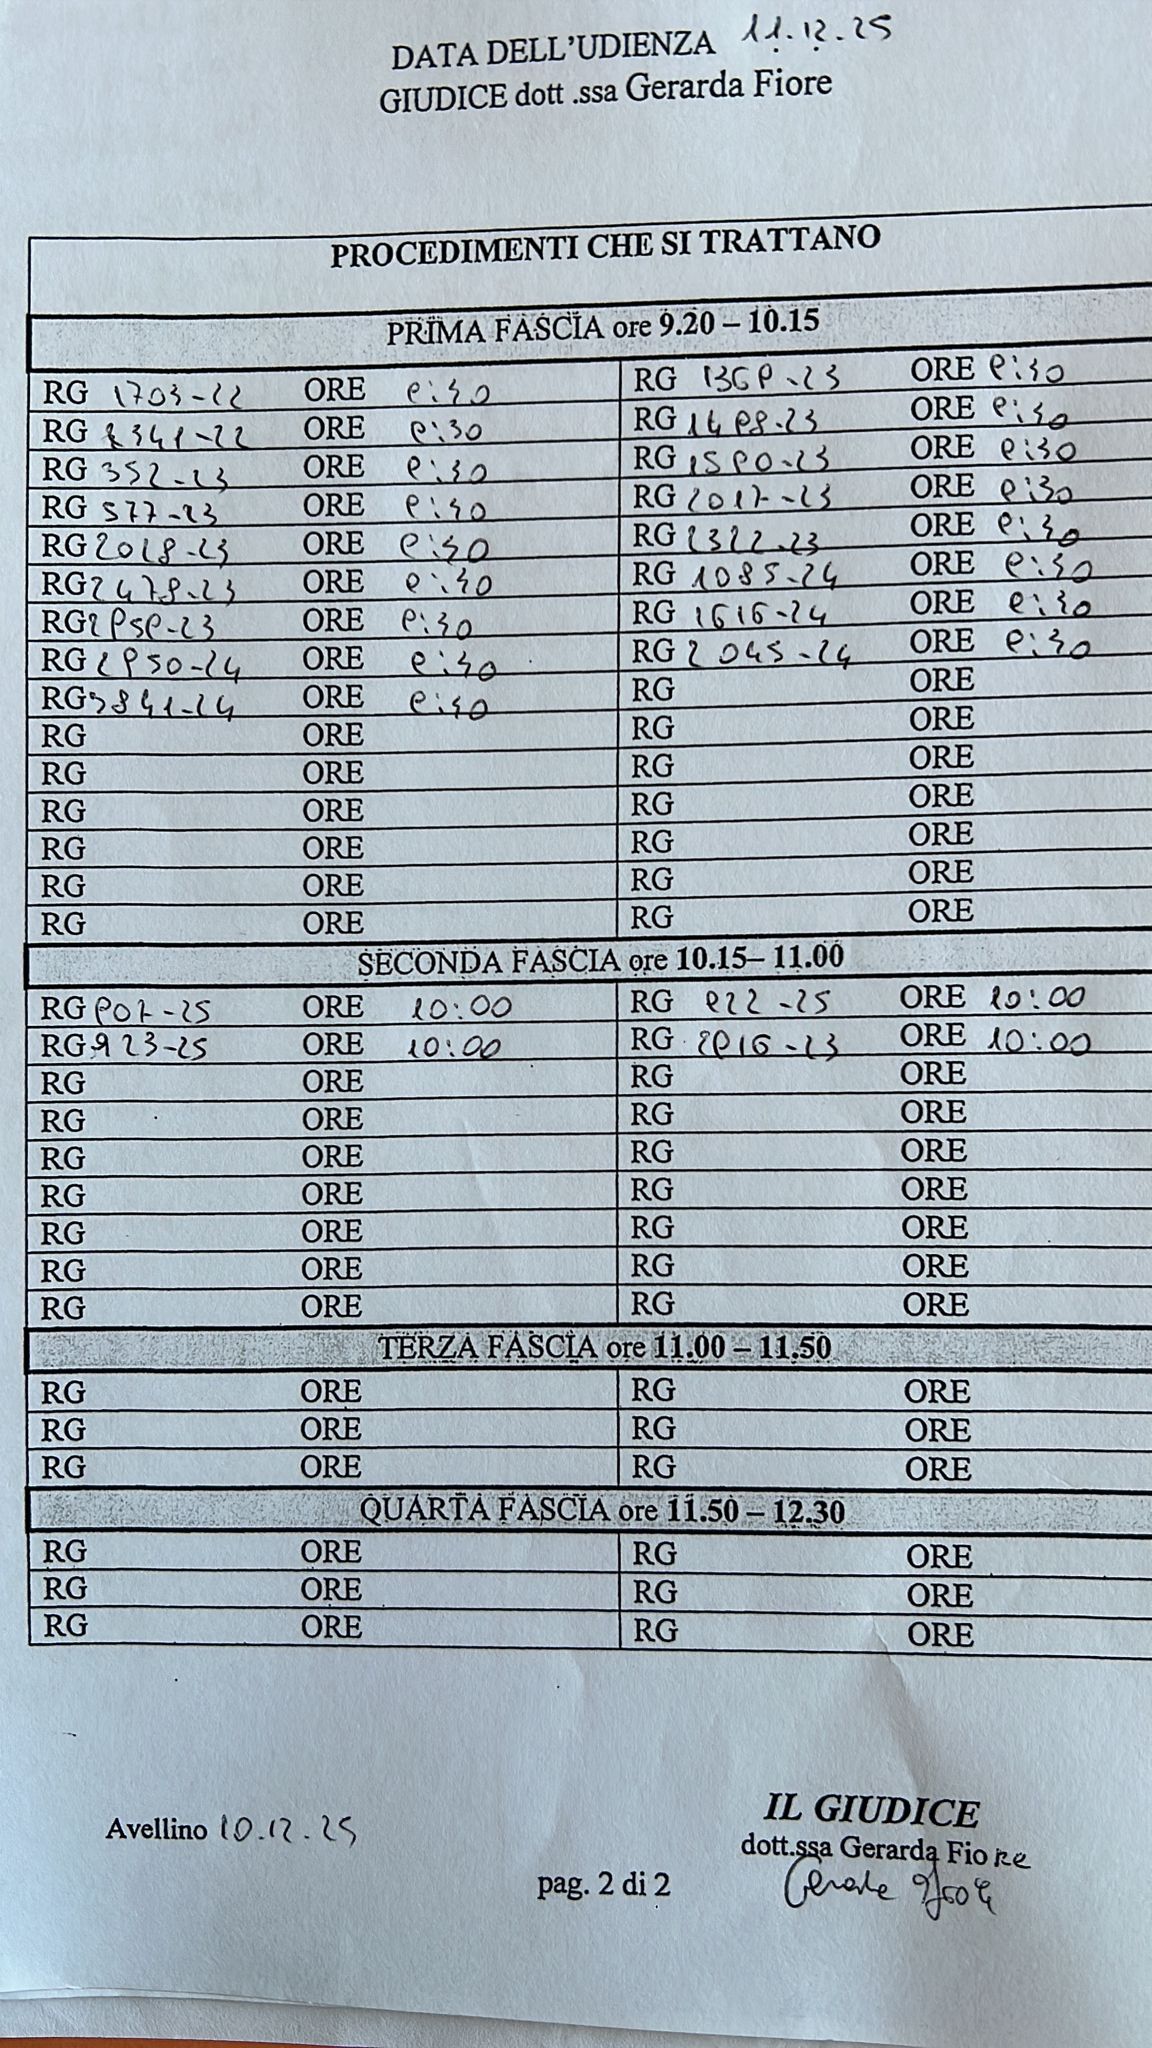 DATA DELL'UDIENZA 11.12.25
GIUDICE dott .ssa Gerarda Fiore
PROCEDIMENTI CHE SI TRATTANO
PRIMA FASCIA ore 9.20 – 10.15
RG 1703-22 ORE 9:30 RG 1369-23 ORE 9:30
RG 2341-22 ORE 9:30 RG 1498-23 ORE 9:30
RG 352-23 ORE 9:30 RG 1590-23 ORE 9:30
RG 577-23 ORE 9:30 RG 2017-23 ORE 9:30
RG 2028-23 ORE 9:30 RG 2322-23 ORE 9:30
RG 2478-23 ORE 9:30 RG 1085-24 ORE 9:30
RG 2959-23 ORE 9:30 RG 1616-24 ORE 9:30
RG 2950-24 ORE 9:30 RG 2045-24 ORE 9:30
RG 3841-24 ORE 9:30 RG ORE
RG ORE RG ORE
RG ORE RG ORE
RG ORE RG ORE
RG ORE RG ORE
RG ORE RG ORE
RG ORE RG ORE
SECONDA FASCIA ore 10.15– 11.00
RG 907-25 ORE 10:00 RG 922-25 ORE 10:00
RG 923-25 ORE 10:00 RG 2916-23 ORE 10:00
RG ORE RG ORE
RG ORE RG ORE
RG ORE RG ORE
RG ORE RG ORE
RG ORE RG ORE
RG ORE RG ORE
RG ORE RG ORE
TERZA FASCIA ore 11.00 – 11.50
RG ORE RG ORE
RG ORE RG ORE
RG ORE RG ORE
QUARTA FASCIA ore 11.50 – 12.30
RG ORE RG ORE
RG ORE RG ORE
RG ORE RG ORE
Avellino 10.12.25
IL GIUDICE
dott.ssa Gerarda Fiore
pag. 2 di 2
Gerarda Fiore